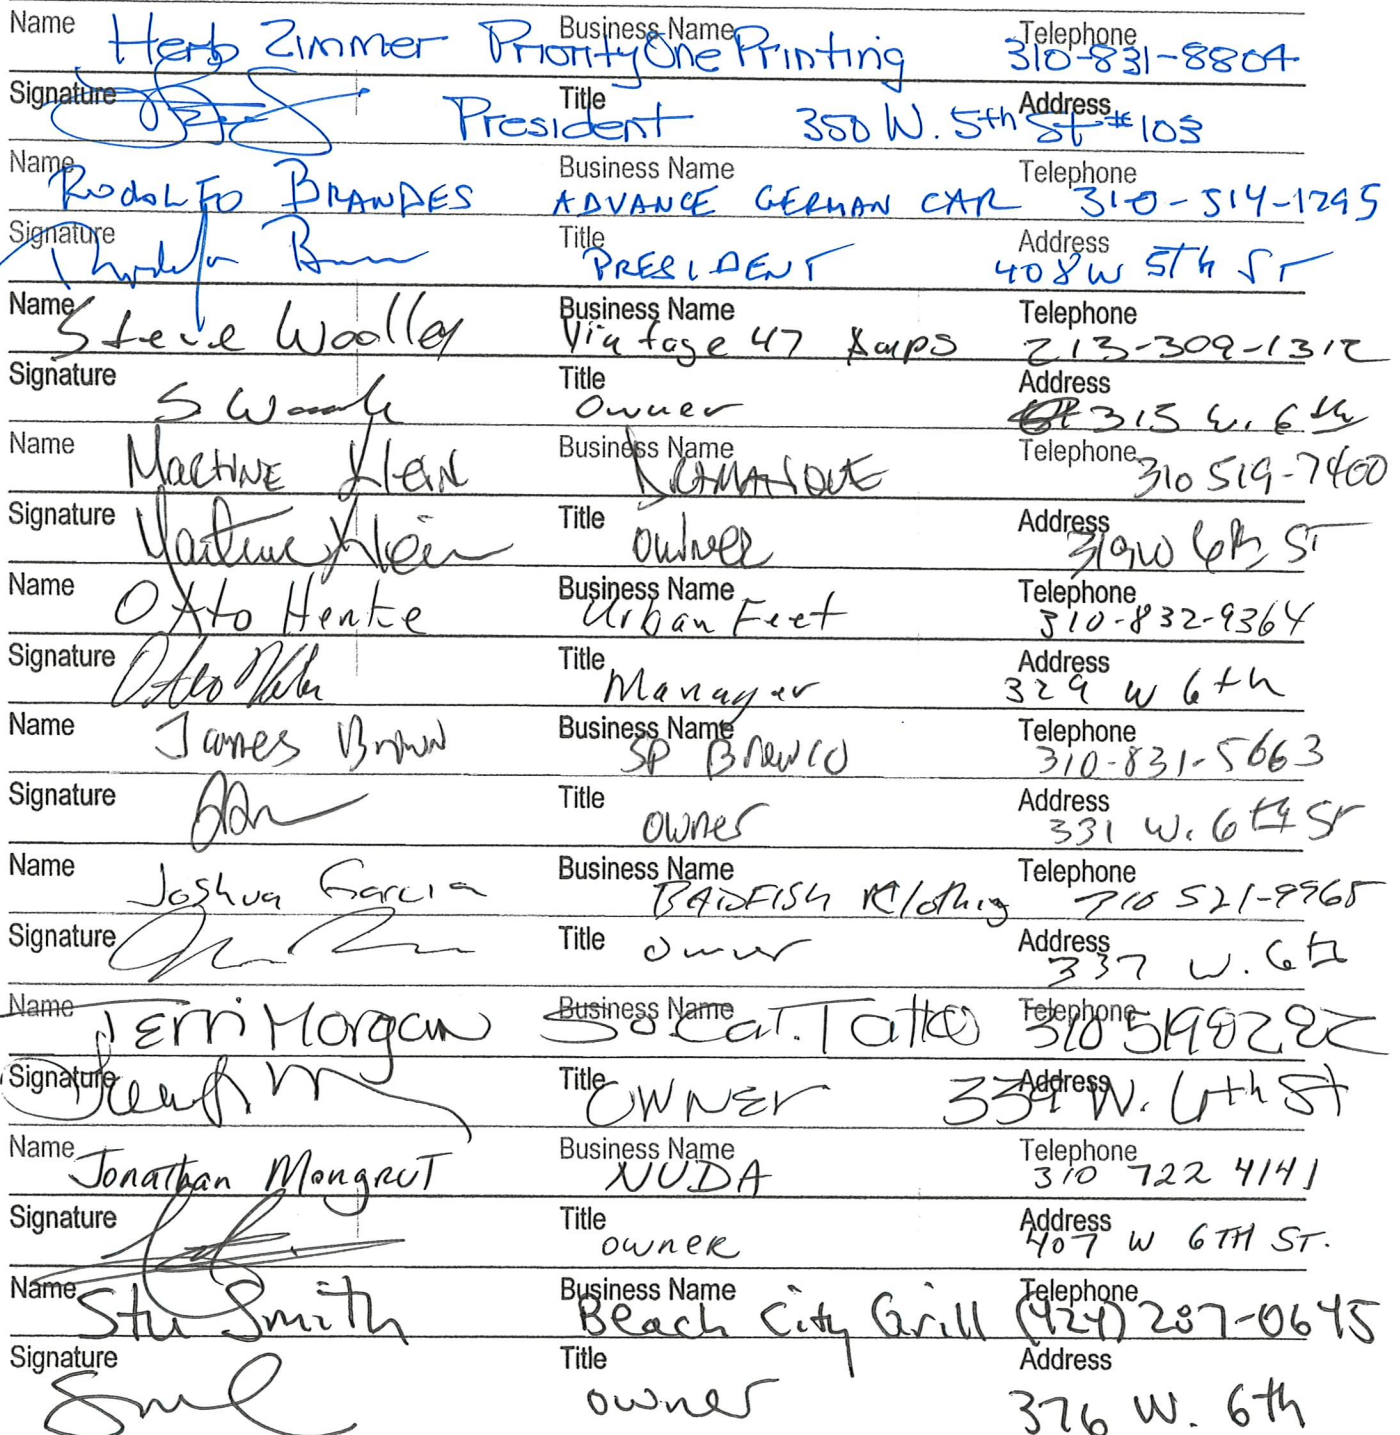 Name Herb Zimmer Business Name Priority One Printing Telephone 310-831-8804
Signature Title President Address 350 W. 5th St #103
Name Rodolfo Brandes Business Name ADVANCE GERMAN CAR Telephone 310-514-1295
Signature Title PRESIDENT Address 408 W 5th ST
Name Steve Woolley Business Name Vintage 47 Amps Telephone 213-309-1312
Signature S Title owner Address 315 W. 6th
Name Martine Klein Business Name Telephone 310 519-7400
Signature Martine Klein Title owner Address 319 W 6th ST
Name Otto Henke Business Name Urban Feet Telephone 310-832-9364
Signature Otto Title Manager Address 329 W 6th
Name James Brown Business Name SP Brewco Telephone 310-831-5663
Signature Title owner Address 331 W. 6th St
Name Joshua Garcia Business Name BADFISH Klothing Telephone 310 521-9965
Signature Title owner Address 337 W. 6th
Name Terri Morgan Business Name So Cal. Tattoo Telephone 310 5198282
Signature Title OWNER Address 339 W. 6th St
Name Jonathan Mongrut Business Name NUDA Telephone 310 722 4141
Signature Title owner Address 407 W 6TH ST.
Name Stu Smith Business Name Beach City Grill Telephone (424) 287-0645
Signature Title owner Address 376 W. 6th